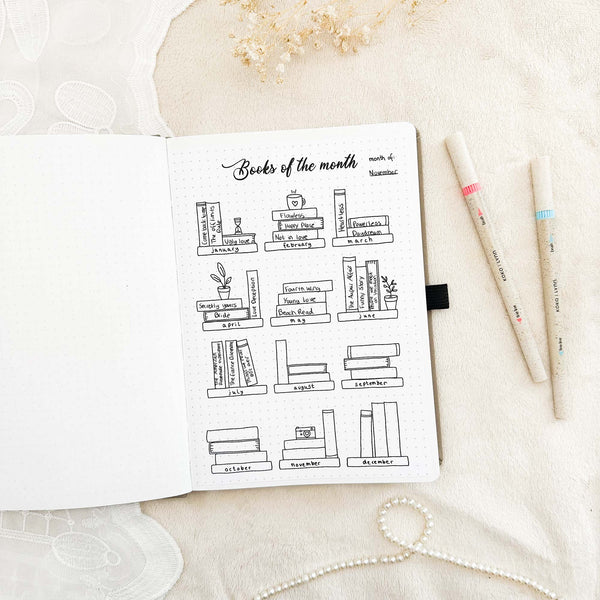 Books of the month
month of:
November
Come back to me
The Off Limits Rule
Ugly Love
january
Flawless
Happy Place
Not in love
february
Heartless
Powerless
Daydream
march
Secretly Yours
Bride
Love Deception
april
Fourth Wing
Young Love
Beach Read
may
Funny Story
june
july
august
september
october
november
december
KOKO | LYNN
KOKO | LYNN